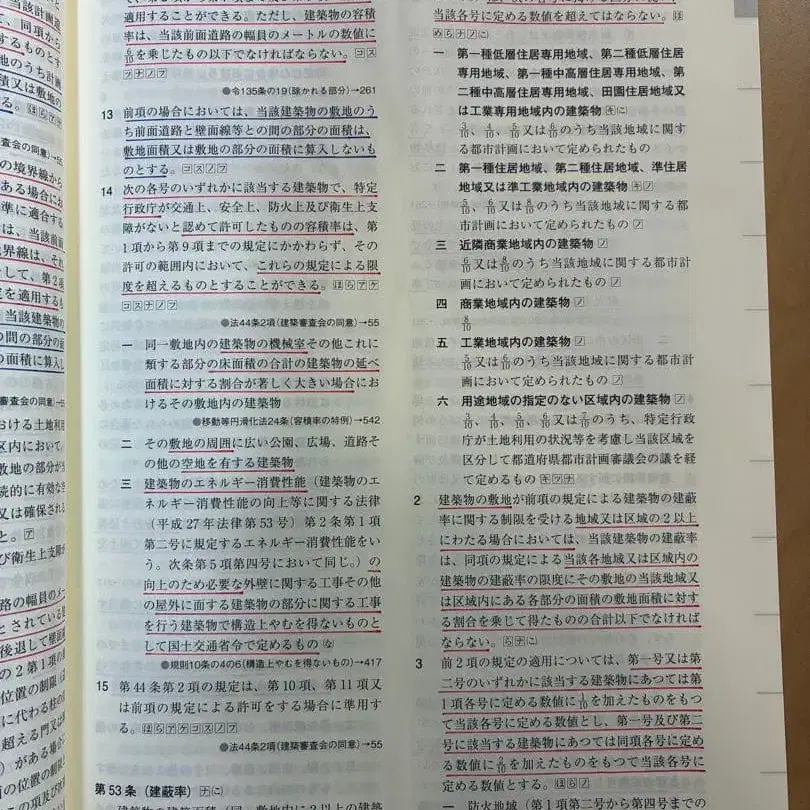 当該計画道
、同項から
するものとす
敷地のうち計画
積又は敷地の
る。ほらアケ
査会の同意)→55
の境界線から
ある場合にお
準に適合する
は、当該前面
境界線は、それ
して、第2項
定を適用する
当該建築物
の間の部分の面
面積に算入し
審査会の同意)→5
おける土地利用
区内において、
敷地の部分が
続的に有効な空
又は確保される
と。ア
び衛生上支障が
路の幅員のメー
とされている
後退して壁面線
の2第1項の
位置の制限(
に代わる柱の
超える門又は
)がある場合に
の位置の制限
その項及び次
適用することができる。ただし、建築物の容積
率は、当該前面道路の幅員のメートルの数値に
6/10を乗じたもの以下でなければならない。コス
フナノフ
●令135条の19(除かれる部分)→261
13 前項の場合においては、当該建築物の敷地のう
ち前面道路と壁面線等との間の部分の面積は、
敷地面積又は敷地の部分の面積に算入しないも
のとする。コスノフ
14 次の各号のいずれかに該当する建築物で、特定
行政庁が交通上、安全上、防火上及び衛生上支
障がないと認めて許可したものの容積率は、第
1項から第9項までの規定にかかわらず、その
許可の範囲内において、これらの規定による限
度を超えるものとすることができる。ほらアケ
コスナノフ
●法44条2項(建築審査会の同意)→55
一 同一敷地内の建築物の機械室その他これに
類する部分の床面積の合計の建築物の延べ
面積に対する割合が著しく大きい場合にお
けるその敷地内の建築物
●移動等円滑化法24条(容積率の特例)→542
二 その敷地の周囲に広い公園、広場、道路そ
の他の空地を有する建築物
三 建築物のエネルギー消費性能(建築物のエ
ネルギー消費性能の向上等に関する法律
(平成27年法律第53号)第2条第1項
第二号に規定するエネルギー消費性能をい
う。次条第5項第四号において同じ。)の
向上のため必要な外壁に関する工事その他
の屋外に面する建築物の部分に関する工事
を行う建築物で構造上やむを得ないものと
して国土交通省令で定めるもの な
●規則10条の4の6(構造上やむを得ないもの)→417
15 第44条第2項の規定は、第10項、第11項又
は前項の規定による許可をする場合に準用す
る。ほらアケコスナノフ
●法44条2項(建築審査会の同意)→55
第53条(建蔽率)ナに
当該各号に定める数値を超えてはならない。ほ
めらナノに
一 第一種低層住居専用地域、第二種低層住居
専用地域、第一種中高層住居専用地域、第
二種中高層住居専用地域、田園住居地域又
は工業専用地域内の建築物 キに
3/10、4/10、5/10又は6/10のうち当該地域に関す
る都市計画において定められたもの
二 第一種住居地域、第二種住居地域、準住居
地域又は準工業地域内の建築物 キノ
5/10、6/10又は8/10のうち当該地域に関する都
市計画において定められたもの ノ
三 近隣商業地域内の建築物 ノ
6/10又は8/10のうち当該地域に関する都市計
画において定められたもの ノ
四 商業地域内の建築物 ノ
8/10
五 工業地域内の建築物 ノ
5/10又は6/10のうち当該地域に関する都市計
画において定められたもの ノ
六 用途地域の指定のない区域内の建築物 ノ
3/10、4/10、5/10、6/10又は7/10のうち、特定行政
庁が土地利用の状況等を考慮し当該区域を
区分して都道府県都市計画審議会の議を経
て定めるもの キフナ
2 建築物の敷地が前項の規定による建築物の建蔽
率に関する制限を受ける地域又は区域の2以上
にわたる場合においては、当該建築物の建蔽率
は、同項の規定による当該各地域又は区域内の
建築物の建蔽率の限度にその敷地の当該地域又
は区域内にある各部分の面積の敷地面積に対す
る割合を乗じて得たものの合計以下でなければ
ならない。らナに
3 前2項の規定の適用については、第一号又は第
二号のいずれかに該当する建築物にあっては第
1項各号に定める数値に1/10を加えたものをもつ
て当該各号に定める数値とし、第一号及び第二
号に該当する建築物にあっては同項各号に定め
る数値に2/10を加えたものをもつて当該各号に
定める数値とする。ほらノ
一 防火地域(第1項第二号から第四号までの